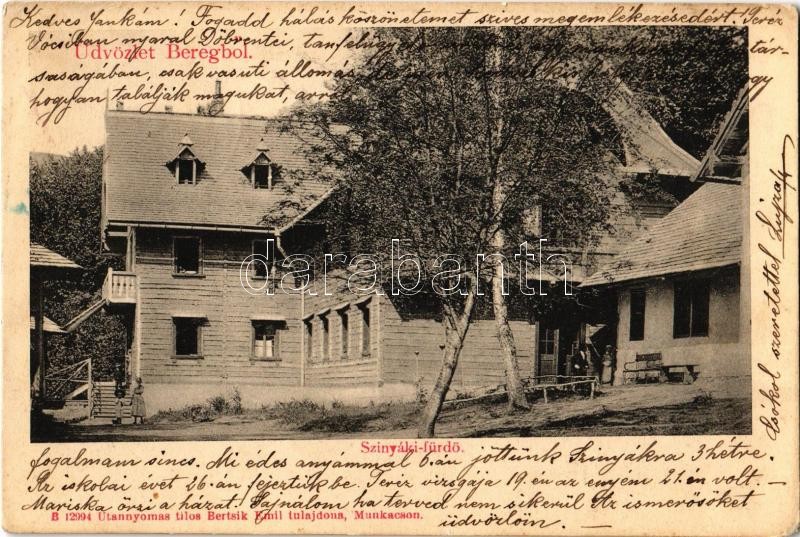 Kedves Jankám! Fogadd hálás köszönetemet szives megemlékezésedért. Teréz
Vócsiban nyaral Döbrentei, tanfelügy
Üdvözlet Beregböl.
társaságában, csak vasuti állomás
hogyan találják magukat, arról
darabanth.com
Csókol szeretettel Lujza
Szinyáki-fürdö.
fogalmam sincs. Mi édes anyámmal 6.-án jöttünk Szinyákra 3 hétre.
Az iskolai évet 26-án fejeztük be. Teréz vizsgája 19.én az enyém 21.én volt.
Mariska örzi a házat. Sajnálom ha terved nem sikerül. Az ismerősöket
üdvözlöm.
B 12994 Utannyomas tilos Bertsik Emil tulajdona, Munkacson.